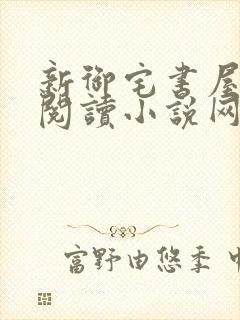 新御宅書屋
閱讀小說网
富野由悠季 中